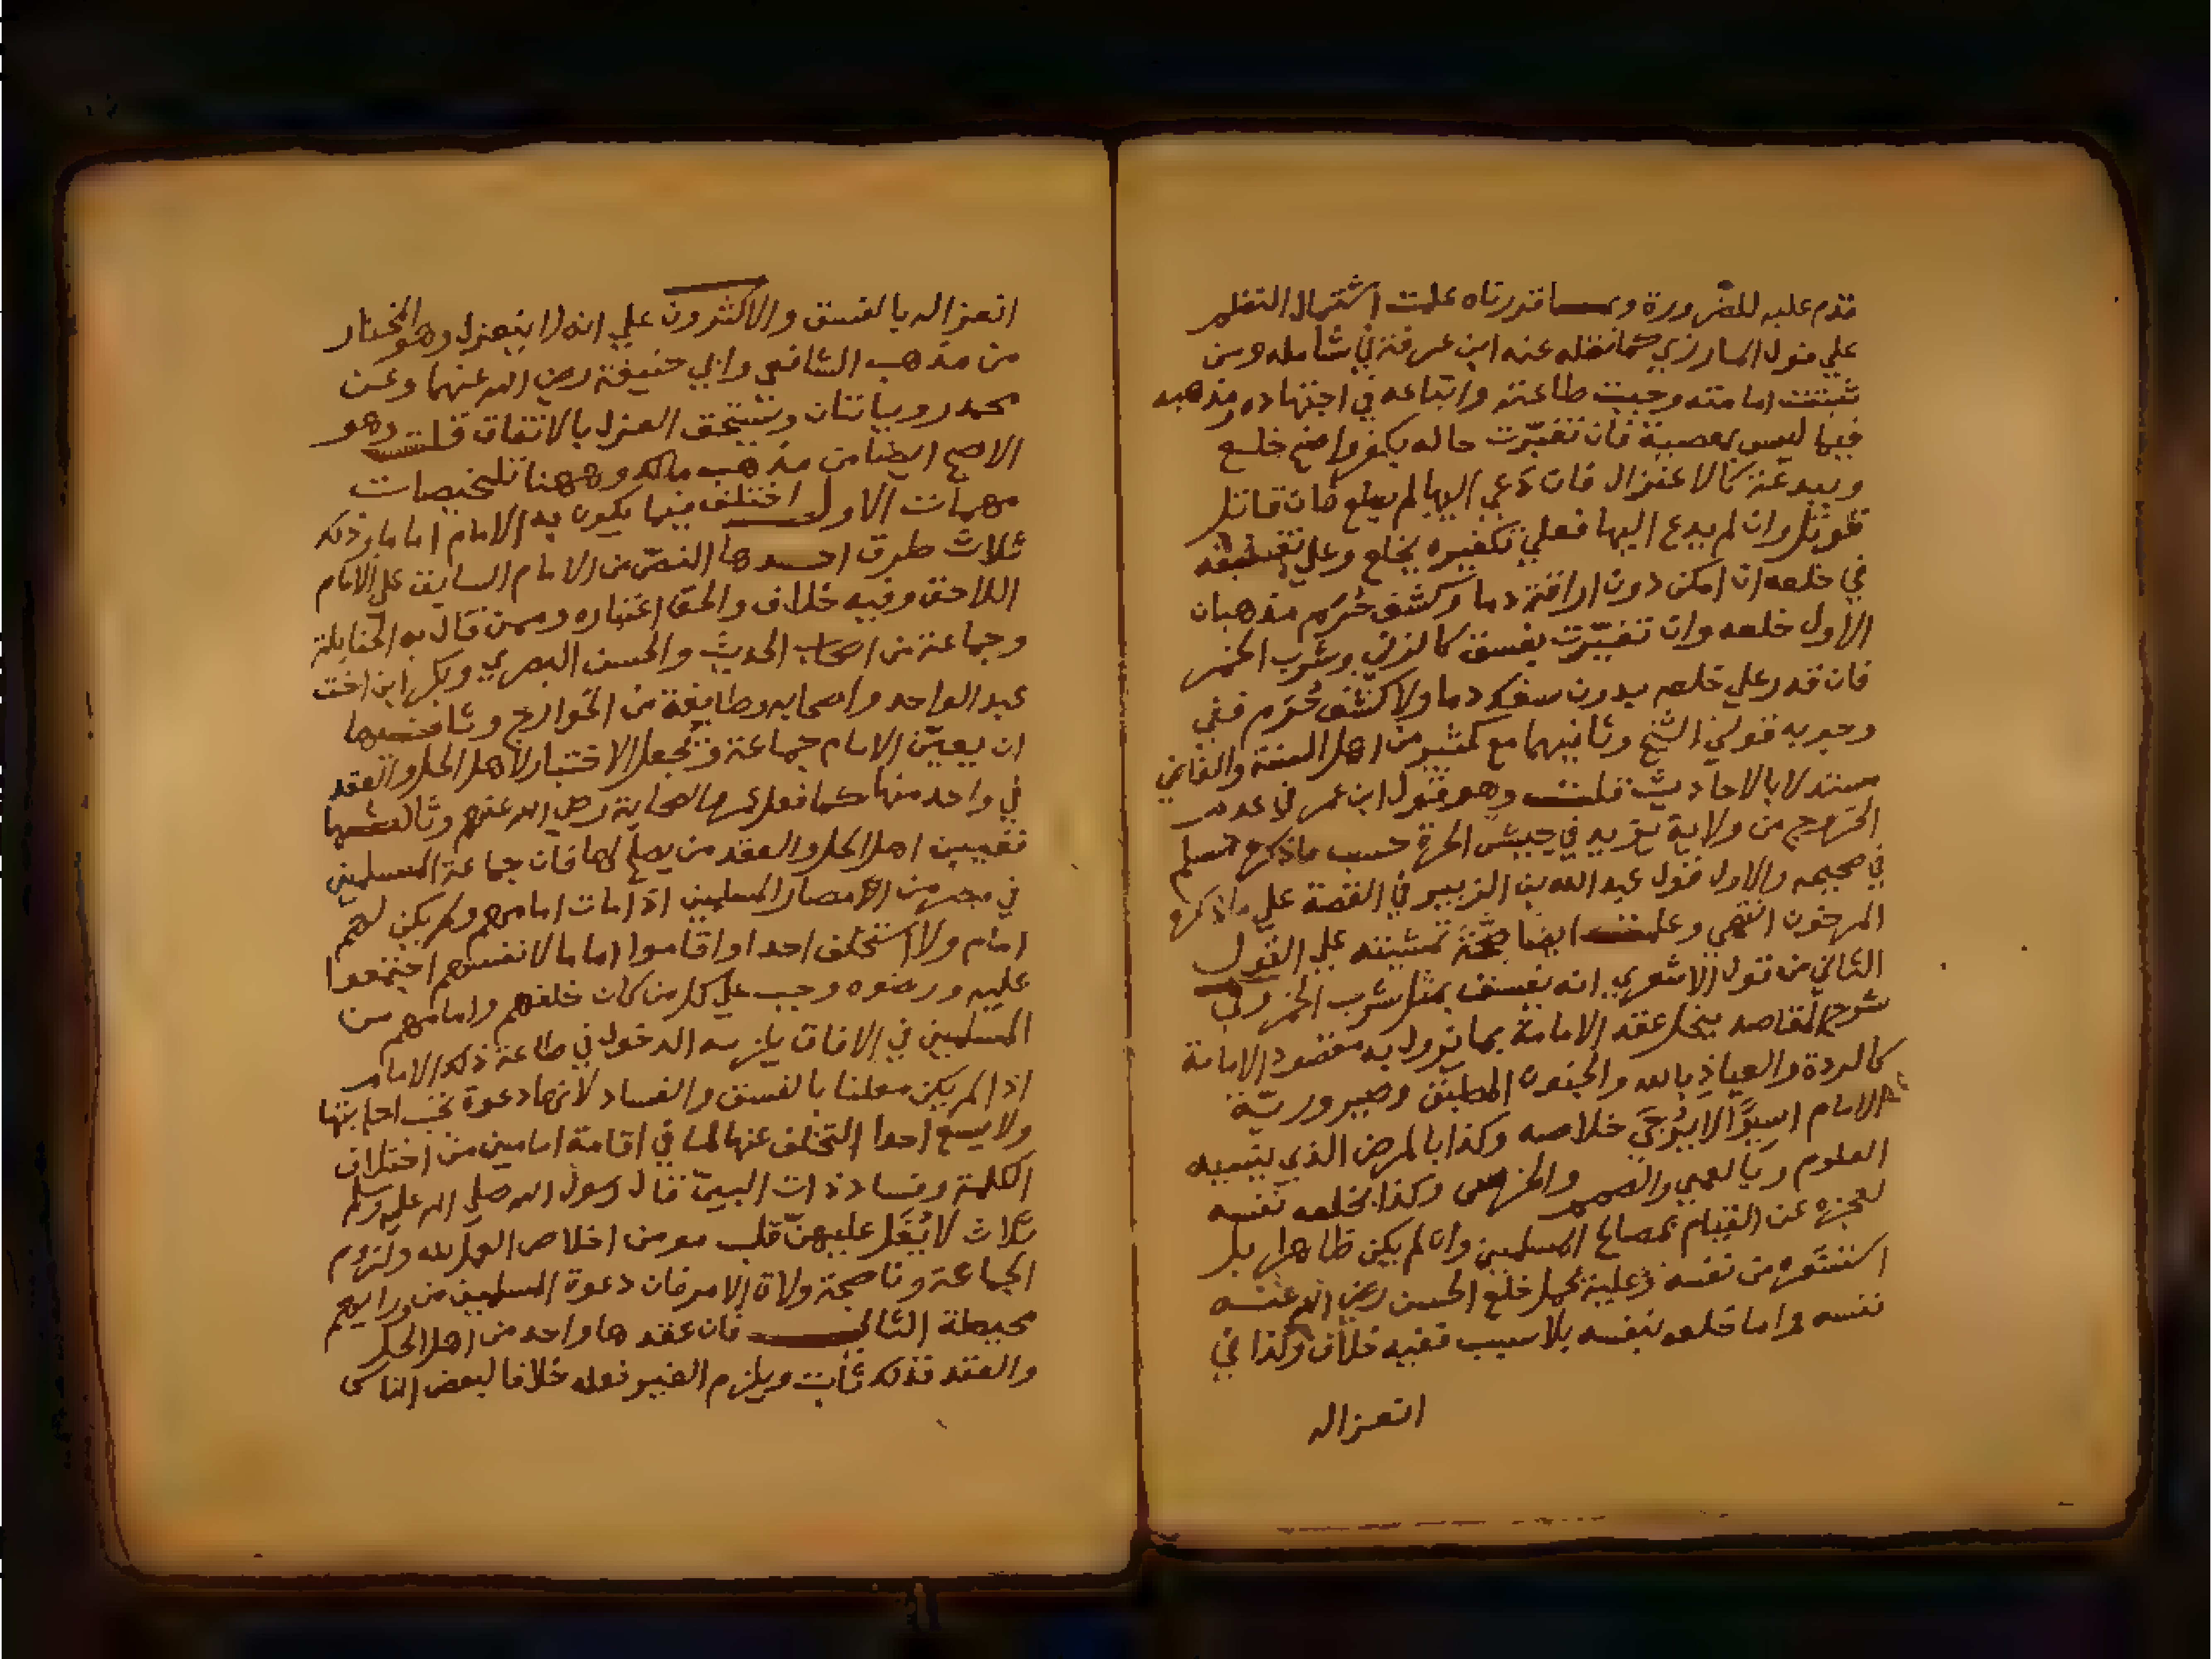 قدم عليه للضرورة وبما قدرناه علمت اشتمال النظم
علي قول المازري كما نقله عنه ابن عرفة في شامله ومن
ثبتت امامته وجبت طاعته واتباعه في اجتهاده ومذهبه
فيما ليس بمعصية فان تغيّرت حاله بكفر واضح خلع
وببدعة كالاعتزال فان دعي اليها لم يطع فان قاتل
قوتل وان لم يدع اليها فعلي تكفيره يخلع وعلي تفسيقه
في خلعه ان امكن دون اراقة دما وكشف حُرَم مذهبان
الاول خلعه وان تغيّرت بفسق كالزني وشرب الخمر
فان قدر علي خلعه بدون سفك دما ولا كشف حُرَم ففي
وجوبه قولي الشيخ وثانيهما مع كثير من اهل السنة والقاضي
مستدلا بالاحاديث قلت وهو قول ابن عمر في عدم
الخروج من ولاية يزيد في جيش الحرة حسب ما ذكره مسلم
في صحيحه والاول قول عبد الله بن الزبير في القصة علي ما ذكره
المورخون انتهي وعلمت ايضا صحّة تمشيته علي القول
الثاني من قول الاشعري انه يفسق بمثل شرب الخمر وفي
شرح المقاصد ينحل عقد الامامة بما يزول به مقصود الامامة
كالردة والعياذ بالله والجنون المطبق وصيرورته
الامام اسيرًا لا يُرجَي خلاصه وكذا بالمرض الذي ينسيه
العلوم وبالعمي والصمم والخرس وكذا بخلعه نفسه
لعجزه عن القيام بمصالح المسلمين وان لم يكن ظاهرا بل
استشعره من نفسه وعليه يحمل خلع الحسن رضي الله عنه
نفسه واما خلعه بنفسه بلا سبب ففيه خلاف وكذا في
انعزاله
انعزاله بالفسق والاكثرون علي انه لا ينعزل وهو المختار
من مذهب الشافعي وابي حنيفة رضي الله عنهما وعن
محمد روايتان ويستحق العزل بالاتفاق قلت وهو
الاصح ايضا من مذهب مالك وههنا تلخيصات
مهمات الاول اختلف فيما يكون به الامام اماما وذلك
ثلاث طرق احدها النصّ من الامام السابق علي الامام
اللاحق وفيه خلاف والحق اعتباره وممن قال به الحنابلة
وجماعة من اصحاب الحديث والحسن البصري وبكر ابن اخت
عبد الواحد واصحابه وطايفة من الخوارج وثانيها
ان يعيّن الامام جماعة ويجعل الاختيار لاهل الحل والعقد
في واحد منها كما فعل عمر والصحابة رضي الله عنهم وثالثها
تعيين اهل الحل والعقد من يصلح لها فان جماعة المسلمين
في مصر من الامصار المسلمين اذا مات امامهم ولم يكن لهم
امام ولا استخلف احدا واقاموا اماما لانفسهم اجتمعوا
عليه ورضوه وجب علي كل من كان خلفهم وامامهم من
المسلمين في الافاق يلزمه الدخول في طاعة ذلك الامام
اذا لم يكن معلنا بالفسق والفساد لانها دعوة تجب اجابتها
ولا يسع احدا التخلف عنها لما في اقامة امامين من اختلاف
الكلمة وفساد ذات البين قال رسول الله صلي الله عليه وسلم
ثلاث لا يُغَل عليهنّ قلب مومن اخلاص العمل لله ولزوم
الجماعة ومناصحة ولاة الامر فان دعوة المسلمين من ورايهم
محيطة الثاني فان عقدها واحد من اهل الحل
والعقد فذلك ثابت ويلزم الغير فعله خلافا لبعض الناس